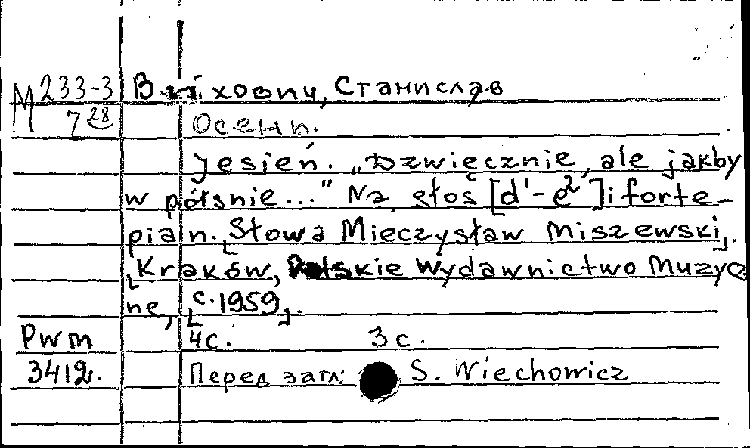 М 233-3 Вѣховичъ, Станислав
7 28 Осень.
Jesień. „Dźwięcznie, ale jakby
w półśnie..." Na głos [d'-e²] i forte-
pian. [Słowa Mieczysław Miszewski].
[Kraków, Polskie Wydawnictwo Muzycz
ne, [c. 1959].
Pwm 4 с. 3 с.
3412. Перед загл: S. Wiechowicz